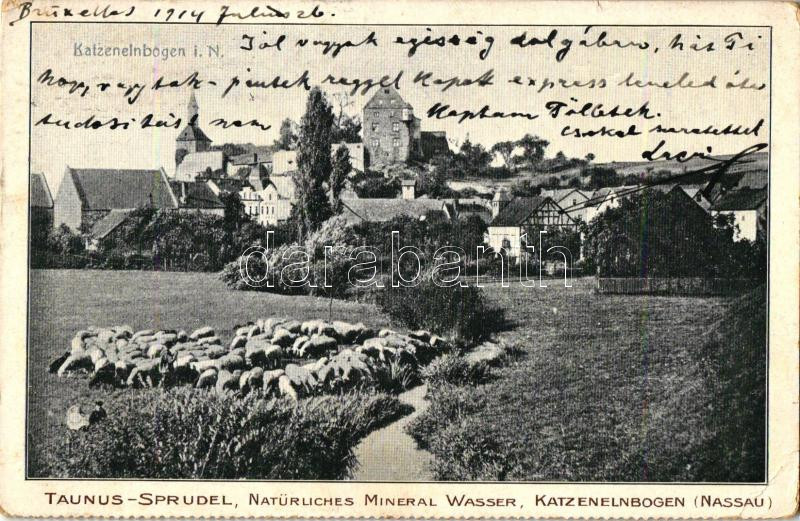 Bruxelles 1914 Julius 26.
Katzenelnbogen i. N.
Jól vagyok egészség dolgában, hát Ti
hogy vagytok - péntek reggel kapott express leveled óta
tudósítást nem kaptam Tőletek.
Csókol szeretettel
darabanth
TAUNUS-SPRUDEL, NATÜRLICHES MINERAL WASSER, KATZENELNBOGEN (NASSAU)